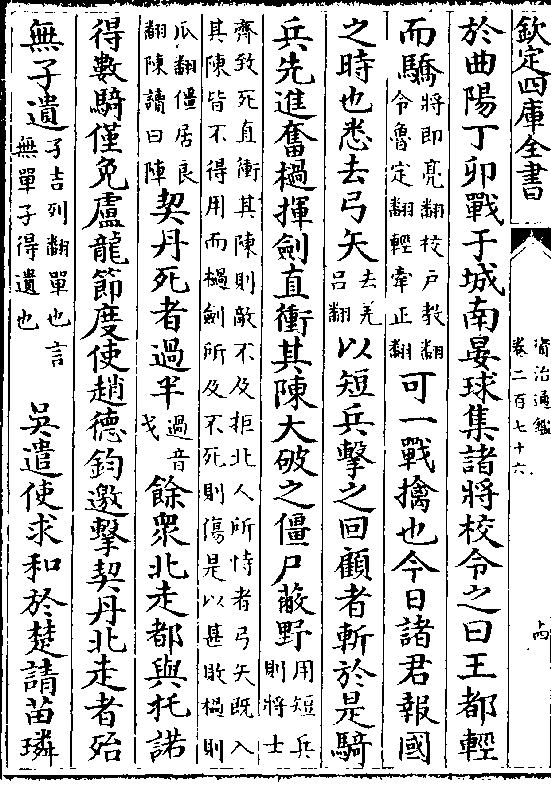 欽定四庫全書
資治通鑑
卷二百七十六
於曲陽丁卯戰于城南晏球集諸將校令之曰王都輕
而驕將即亮翻校户教翻令魯定翻輕牽正翻可一戰擒也今日諸君報國
之時也悉去弓矢去羌吕翻以短兵擊之回顧者斬於是騎
兵先進奮檛揮劒直衝其陳大破之僵尸蔽野用短兵則將士
齊致死直衝其陳則敵不及拒北人所恃者弓矢既入
其陳皆不得用而檛劒所及不死則傷是以甚敗檛則
瓜翻僵居良翻陳讀曰陣契丹死者過半過音戈餘衆北走都與托諾
得數騎僅免盧龍節度使趙德鈞邀擊契丹北走者殆
無孑遺孑吉列翻單也言無單孑得遺也 吳遣使求和於楚請苗璘